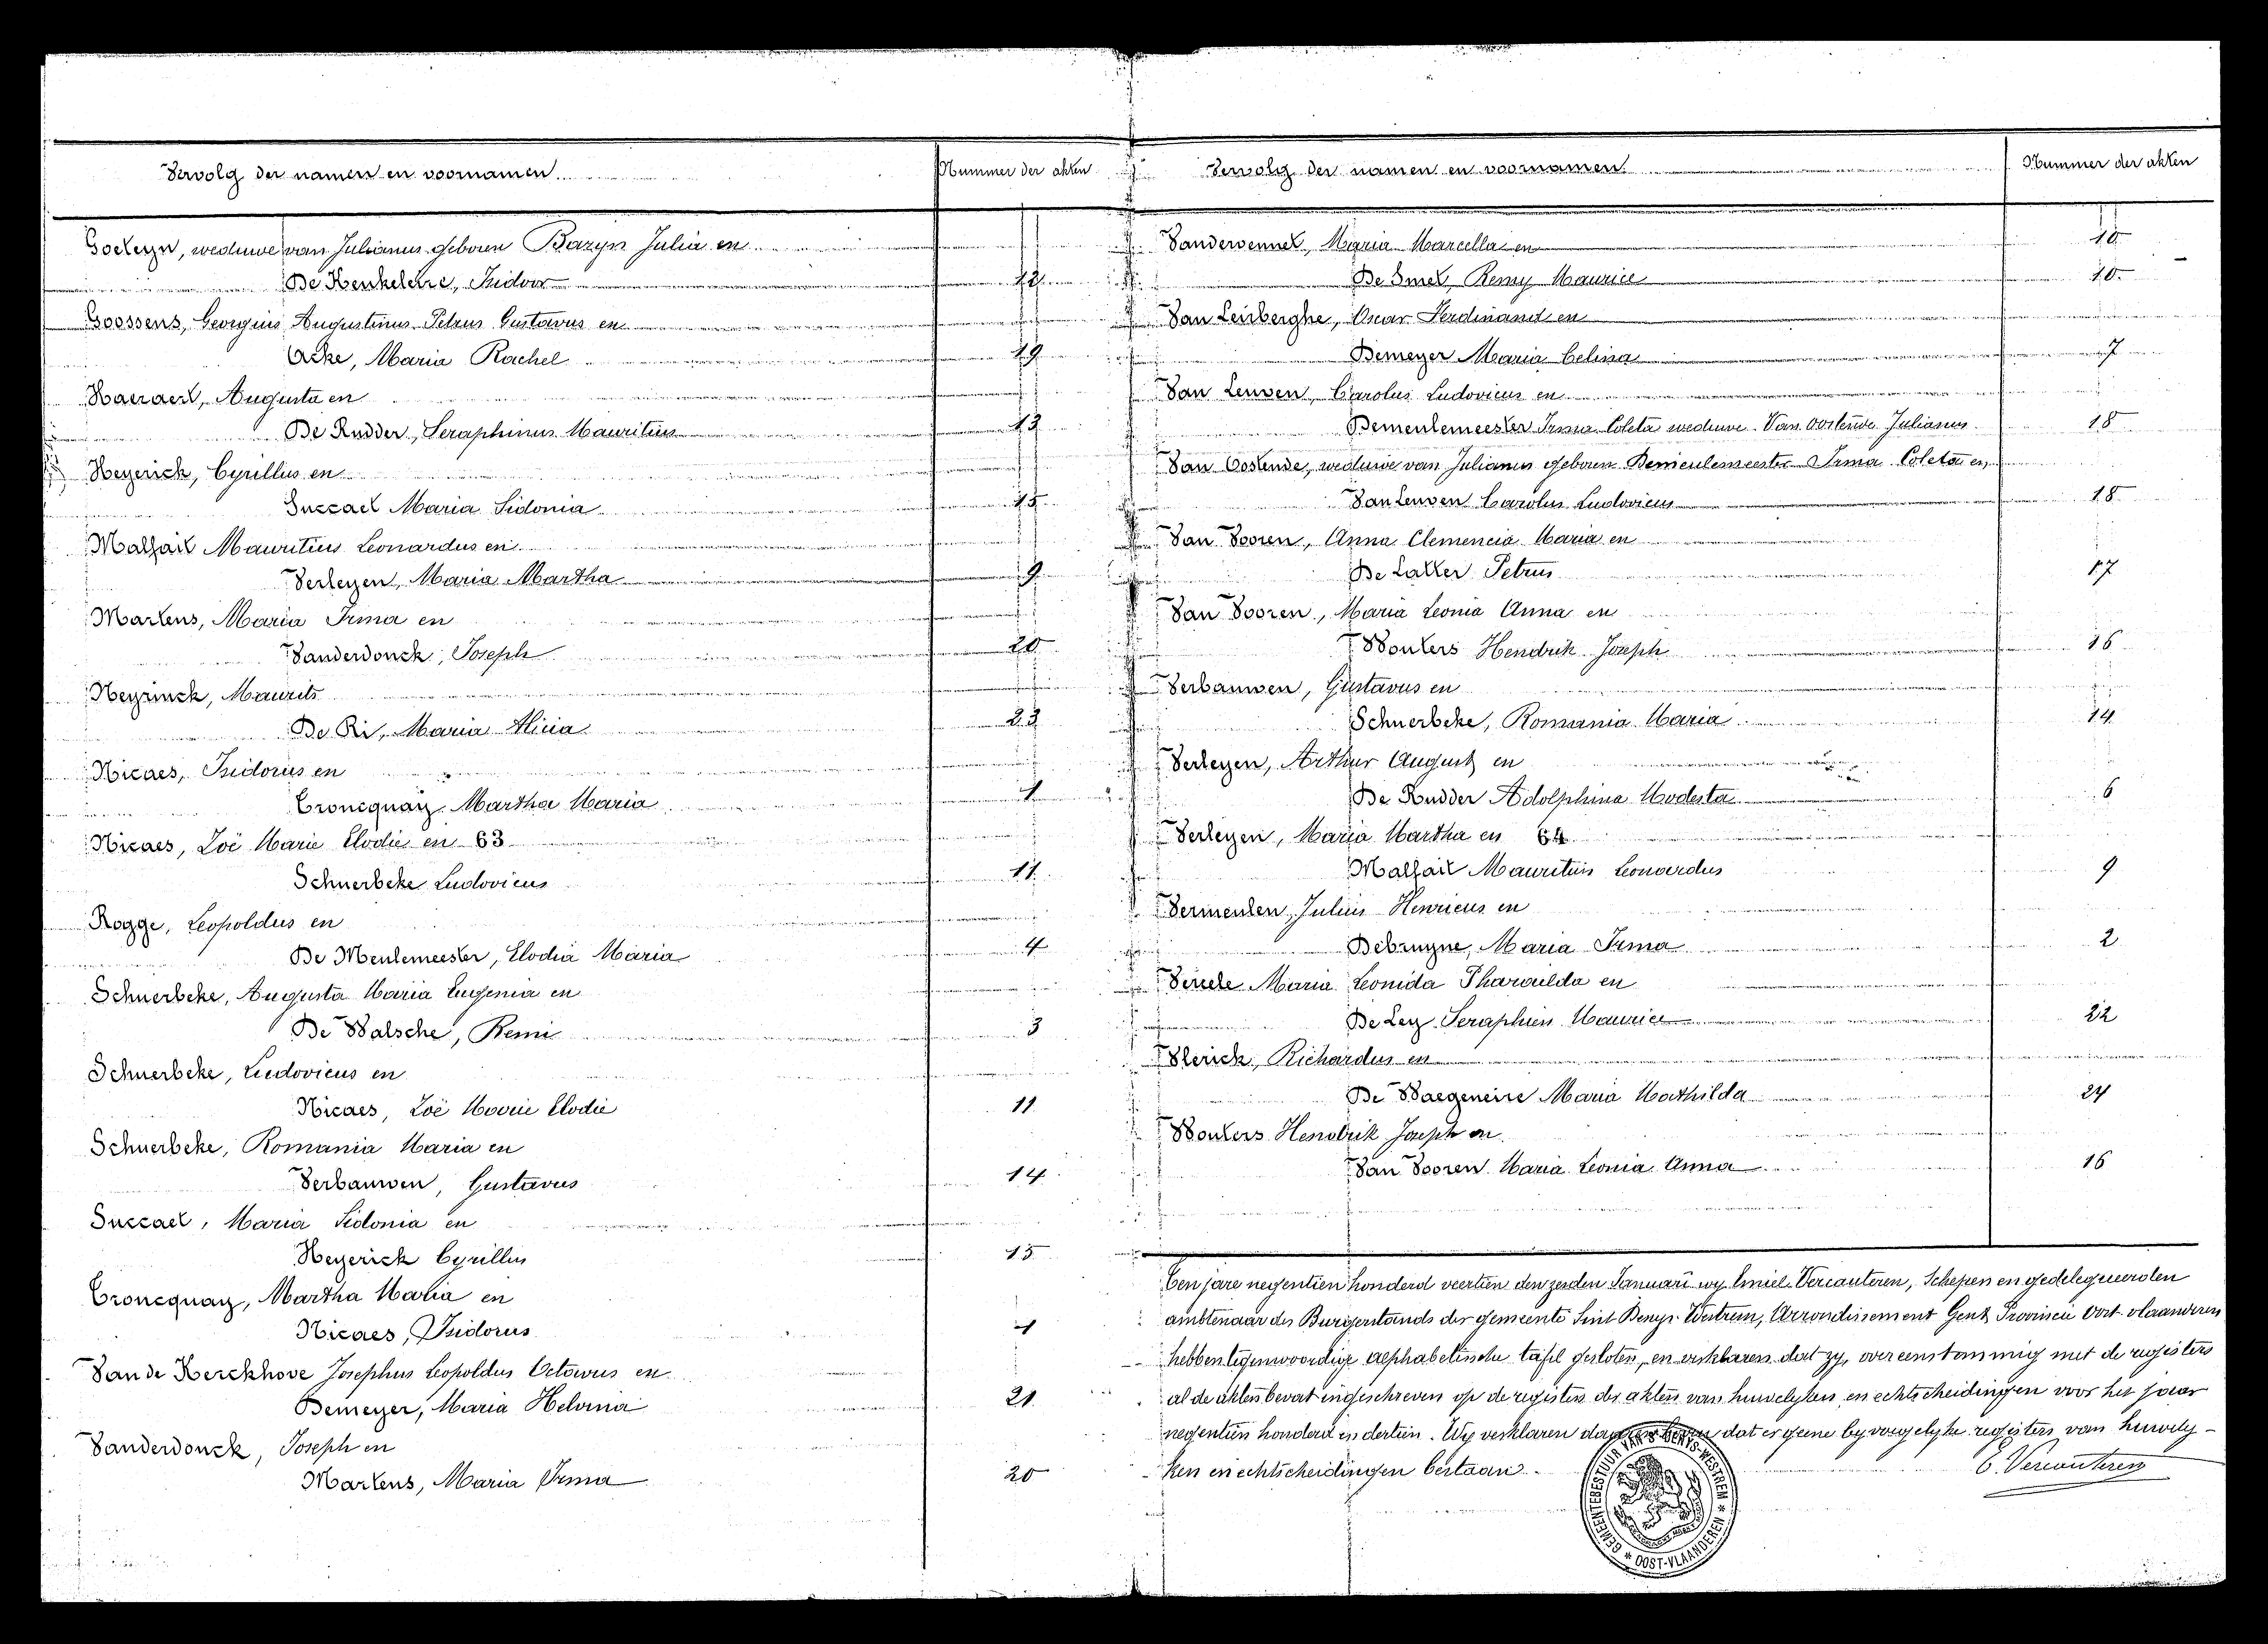 Vervolg der namen en voornamen
Nummer der akten
Goeleyn, weduwe van Julianus geboren Bazyn Julia en
De Keukeleire, Isidoor 12
Goossens, Georgius Augustinus Petrus Gustavus en
Acke, Maria Rachel 19
Haeraert, Augusta en
De Rudder, Seraphinus Mauritius 13
Heyerick, Cyrillus en
Succael Maria Sidonia 15
Malfait Mauritius Leonardus en
Verleyen, Maria Martha 9
Martens, Maria Irma en
Vanderdonck, Joseph 20
Neyrinck, Maurits
De Ri, Maria Alicia 23
Nicaes, Isidorus en
Croncquay Martha Maria 1
Nicaes, Zoë Marie Elodie en 63
Schuerbeke Ludovicus 11
Rogge, Leopoldus en
De Meulemeester, Elodia Maria 4
Schuerbeke, Augusta Maria Eugenia en
De Walsche, Remi 3
Schuerbeke, Ludovicus en
Nicaes, Zoë Marie Elodie 11
Schuerbeke, Romania Maria en
Verbauwen, Gustavus 14
Succael, Maria Sidonia en
Heyerick Cyrillus 15
Croncquay, Martha Maria en
Nicaes, Isidorus 1
Van de Kerckhove Josephus Leopoldus Octavus en
Demeyer, Maria Helvina 21
Vanderdonck, Joseph en
Martens, Maria Irma 20
Vervolg der namen en voornamen
Nummer der akten
Vandervennet, Maria Marcella en 10
De Smet, Remy Maurice 10
Van Leirberghe, Oscar Ferdinand en
Demeyer Maria Celina 7
Van Leuven, Carolus Ludovicus en
Demeulemeester Irma Coleta weduwe Van Oostende Julianus 18
Van Oostende, weduwe van Julianus geboren Demeulemeester Irma Coleta en
Van Leuven Carolus Ludovicus 18
Van Vooren, Anna Clemencia Maria en
De Latter Petrus 17
Van Vooren, Maria Leonia Anna en
Wouters Hendrik Joseph 16
Verbauwen, Gustavus en
Schuerbeke, Romania Maria 14
Verleyen, Arthur August en
De Rudder Adolphina Modesta 6
Verleyen, Maria Martha en 64
Malfait Mauritius Leonardus 9
Vermeulen, Julius Henricus en
Debruyne, Maria Irma 2
Maria Leonida en
De Ley Seraphien Maurice 22
Vlerick, Richardus en
De Waegeneire Maria Mathilda 24
Wouters Hendrik Joseph en
Van Vooren Maria Leonia Anna 16
Ten jare negentien honderd veertien den zesden Januari wy Emiel Vercauteren, Schepen en gedelegueerden
ambtenaar des Burgerstands der gemeente Sint Denys Westrem, Arrondissement Gent Provincie Oost vlaanderen
hebben tegenwoordige alphabetische tafel gesloten, en verklaren dat zy, overeenstemmig met de registers
al de akten bevat ingeschreven op de registers der akten van huwelyken en echtscheidingen voor het jaar
negentien honderd en dertien. Wy verklaren daarenboven dat er geene byvoegelyke registers van huwely-
ken en echtscheidingen bestaan.
E. Vercauteren
GEMEENTEBESTUUR VAN S. DENYS-WESTREM * OOST-VLAANDEREN *